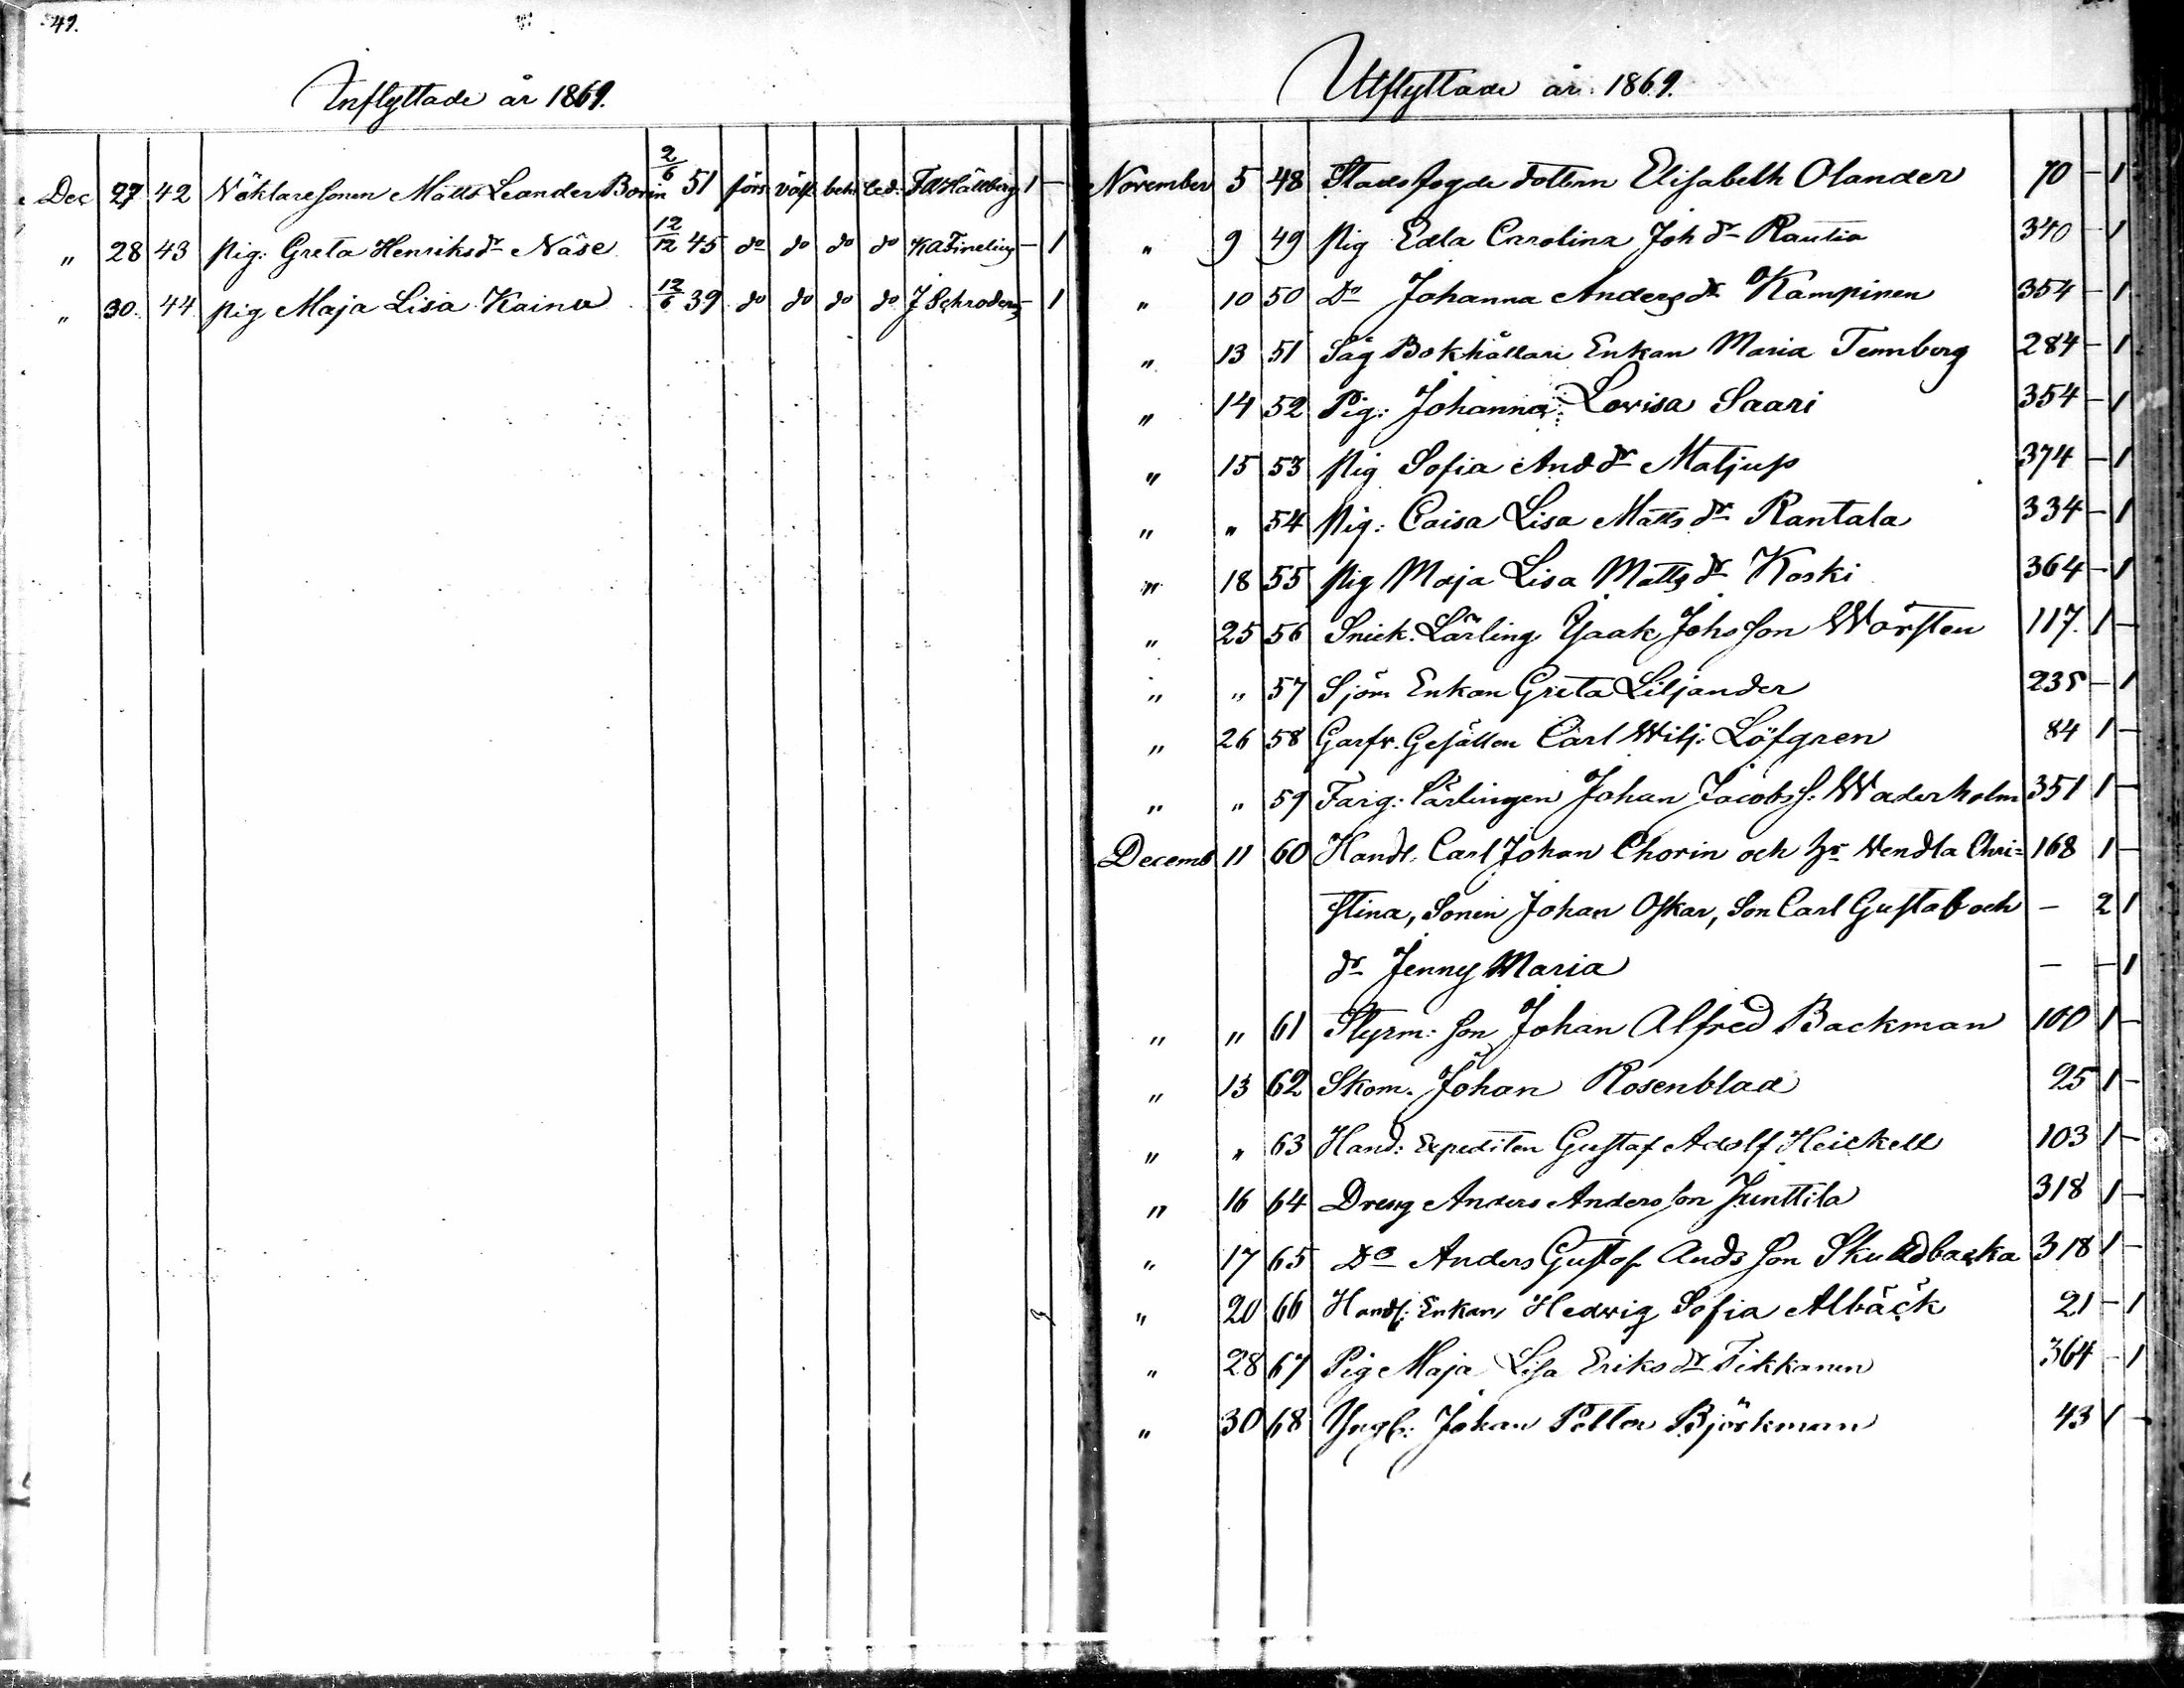 49.
Inflyttade år 1869.
Dec 27 42 Mäklaresonen Matts Leander Borin 2/6 51 förs. välf. behi led. 1 —
" 28 43 pig: Greta Henriksdr Näse 12/12 45 do do do do K A Finelius — 1
" 30. 44 pig Maja Lisa Kainu 12/6 39 do do do do J Schroderus — 1
Utflyttade år 1869.
November 5 48 Stadsfogde dottern Elisabeth Olander 70 — 1
" 9 49 pig Edla Carolina Joh dr Rautio 340 — 1
" 10 50 Do Johanna Anders dr Kampinen 354 — 1
" 13 51 Såg Bokhållari Enkan Maria Tennberg 284 — 1
" 14 52 Pig: Johanna Lovisa Saari 354 — 1
" 15 53 pig Sofia And dr Matjus 374 — 1
" " 54 pig: Caisa Lisa Matts dr Rantala 334 — 1
" 18 55 pig Maja Lisa Matts dr Koski 364 — 1
" 25 56 Snick. Lärling Isaak Johs son Worsten 117. 1 —
" " 57 Sjöm Enkan Greta Liljander 235 — 1
" 26 58 Garfv. Gesällen Carl Wilj: Löfgren 84 1 —
" " 59 Farg: lärlingen Johan Jacobs s: Waderholm 351 1 —
Decemb 11 60 Handl. Carl Johan Chorin och hr Wendla Chri= 168 1 —
stina, Sonen Johan Oskar, Son Carl Gustaf och — 2 1
dr Jenny Maria — — 1
" " 61 Styrm: Son Johan Alfred Backman 100 1 —
" 13 62 Skom. Johan Rosenblad 25 1 —
" " 63 Hand: Expediten Gustaf Adolf Heickell 103 1 —
" 16 64 Dreng Anders Anders son Junttila 318 1 —
" 17 65 Do Anders Gustaf Ands Son Skullbacka 318 1 —
" 20 66 Handl: Enkan Hedvig Sofia Albäck 21 — 1
" 28 67 Pig Maja Lisa Eriks dr Tikkanen 364 — 1
" 30 68 Yngl: Johan Petter Björkman 43 1 —